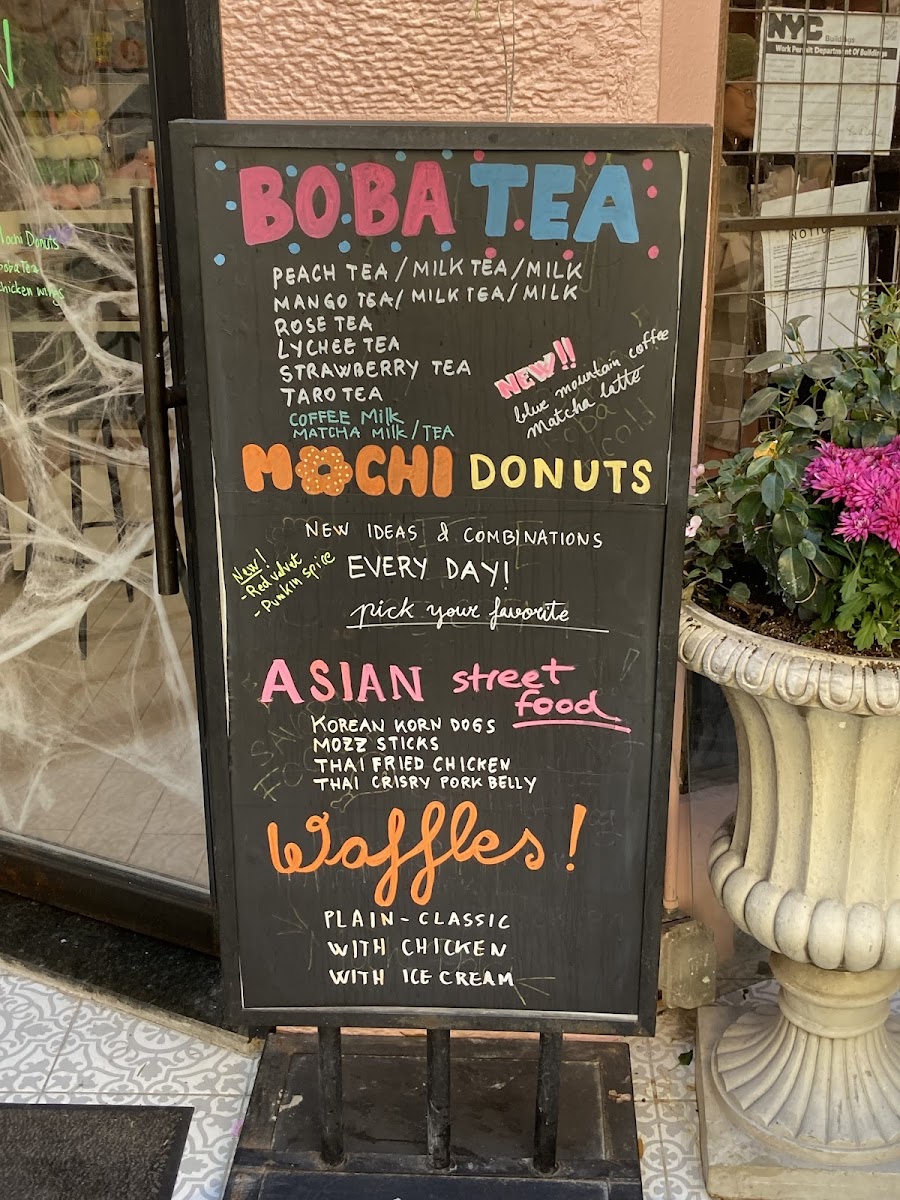 BOBA TEA
PEACH TEA / MILK TEA / MILK
MANGO TEA / MILK TEA / MILK
ROSE TEA
LYCHEE TEA
STRAWBERRY TEA
TARO TEA
COFFEE Milk
MATCHA MILK / TEA
NEW!!
blue mountain coffee
matcha latte
MOCHI DONUTS
NEW IDEAS & COMBINATIONS
EVERY DAY!
pick your favorite
New!
- Red velvet
- Pumkin spice
ASIAN street
food
KOREAN KORN DOGS
MOZZ STICKS
THAI FRIED CHICKEN
THAI CRISRY PORK BELLY
Waffles!
PLAIN - CLASSIC
WITH CHICKEN
WITH ICE CREAM
Mochi Donuts
boba Tea
chicken wings
NYC Buildings
Work Permit Department Of Buildings
NOTICE